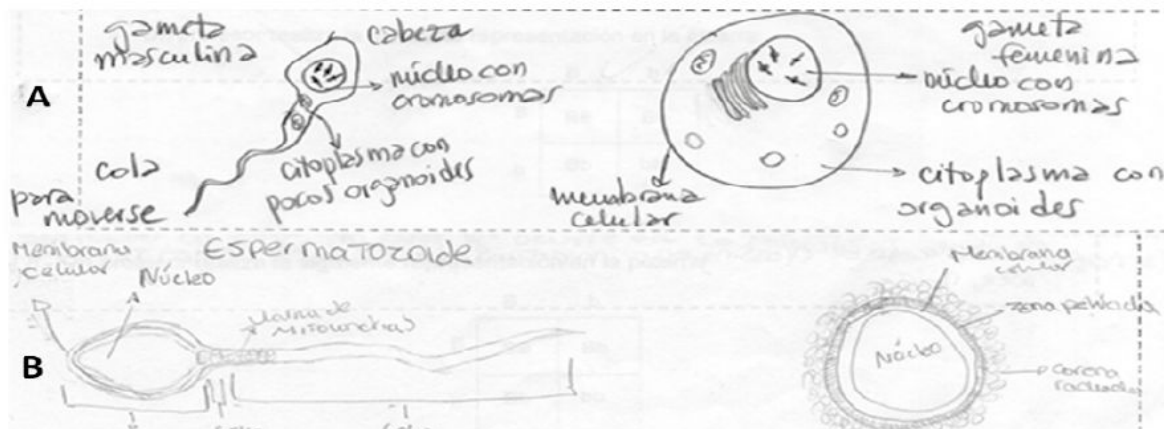 A
gameta
masculina
cabeza
núcleo con
cromosomas
citoplasma con
pocos organoides
cola
para
moverse
gameta
femenina
núcleo con
cromosomas
citoplasma con
organoides
membrana
celular
B
Membrana
celular
Espermatozoide
Núcleo
mitocondrias
Membrana
celular
zona pelúcida
Núcleo
corona
radiada